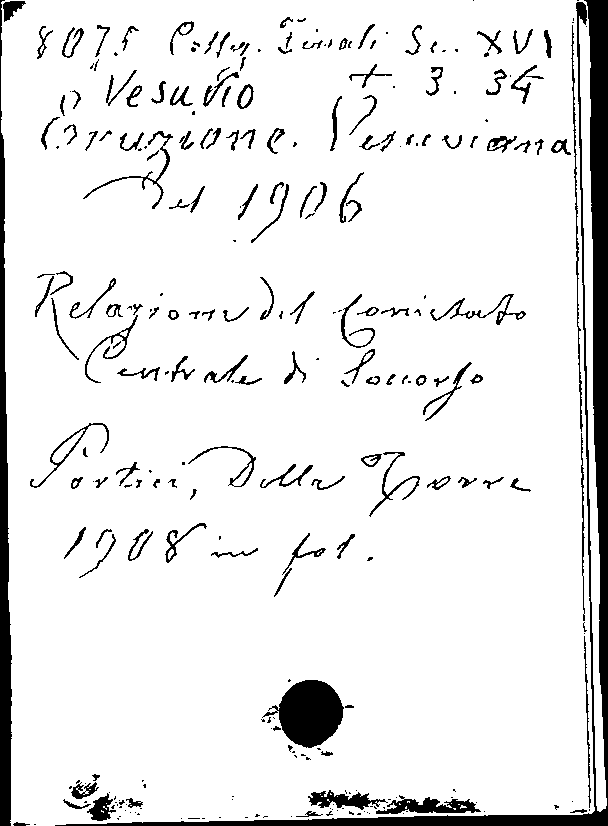 8075 Collez. Finali Sc. XVI
Vesuvio +. 3. 34
Eruzione. Vesuviana
del 1906
Relazione del Comitato
Centrale di Soccorso
Portici, Della Torre
1908 in fol.